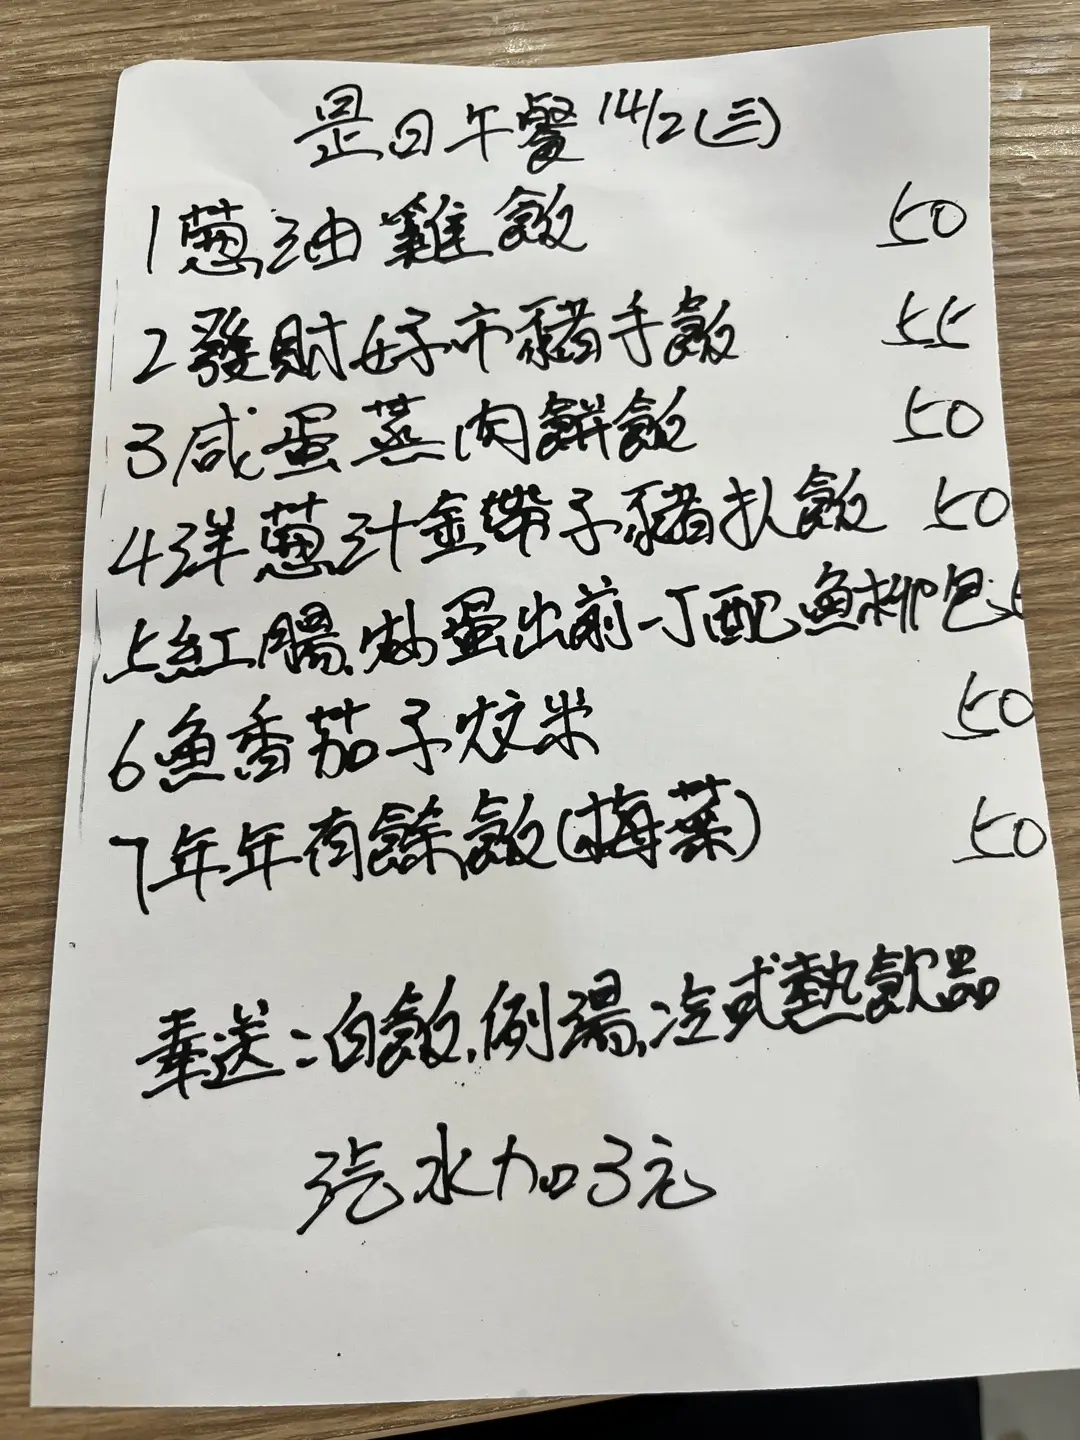 是日午餐 14/2(三)
1 葱油雞飯 50
2 發財好市豬手飯 55
3 咸蛋蒸肉餅飯 50
4 洋葱汁金帶子豬扒飯 50
5 紅腸,炒蛋出前一丁配魚柳包
6 魚香茄子炆米 50
7 年年有餘飯(梅菜) 50
奉送:白飯,例湯,冷或熱飲品
汽水加3元